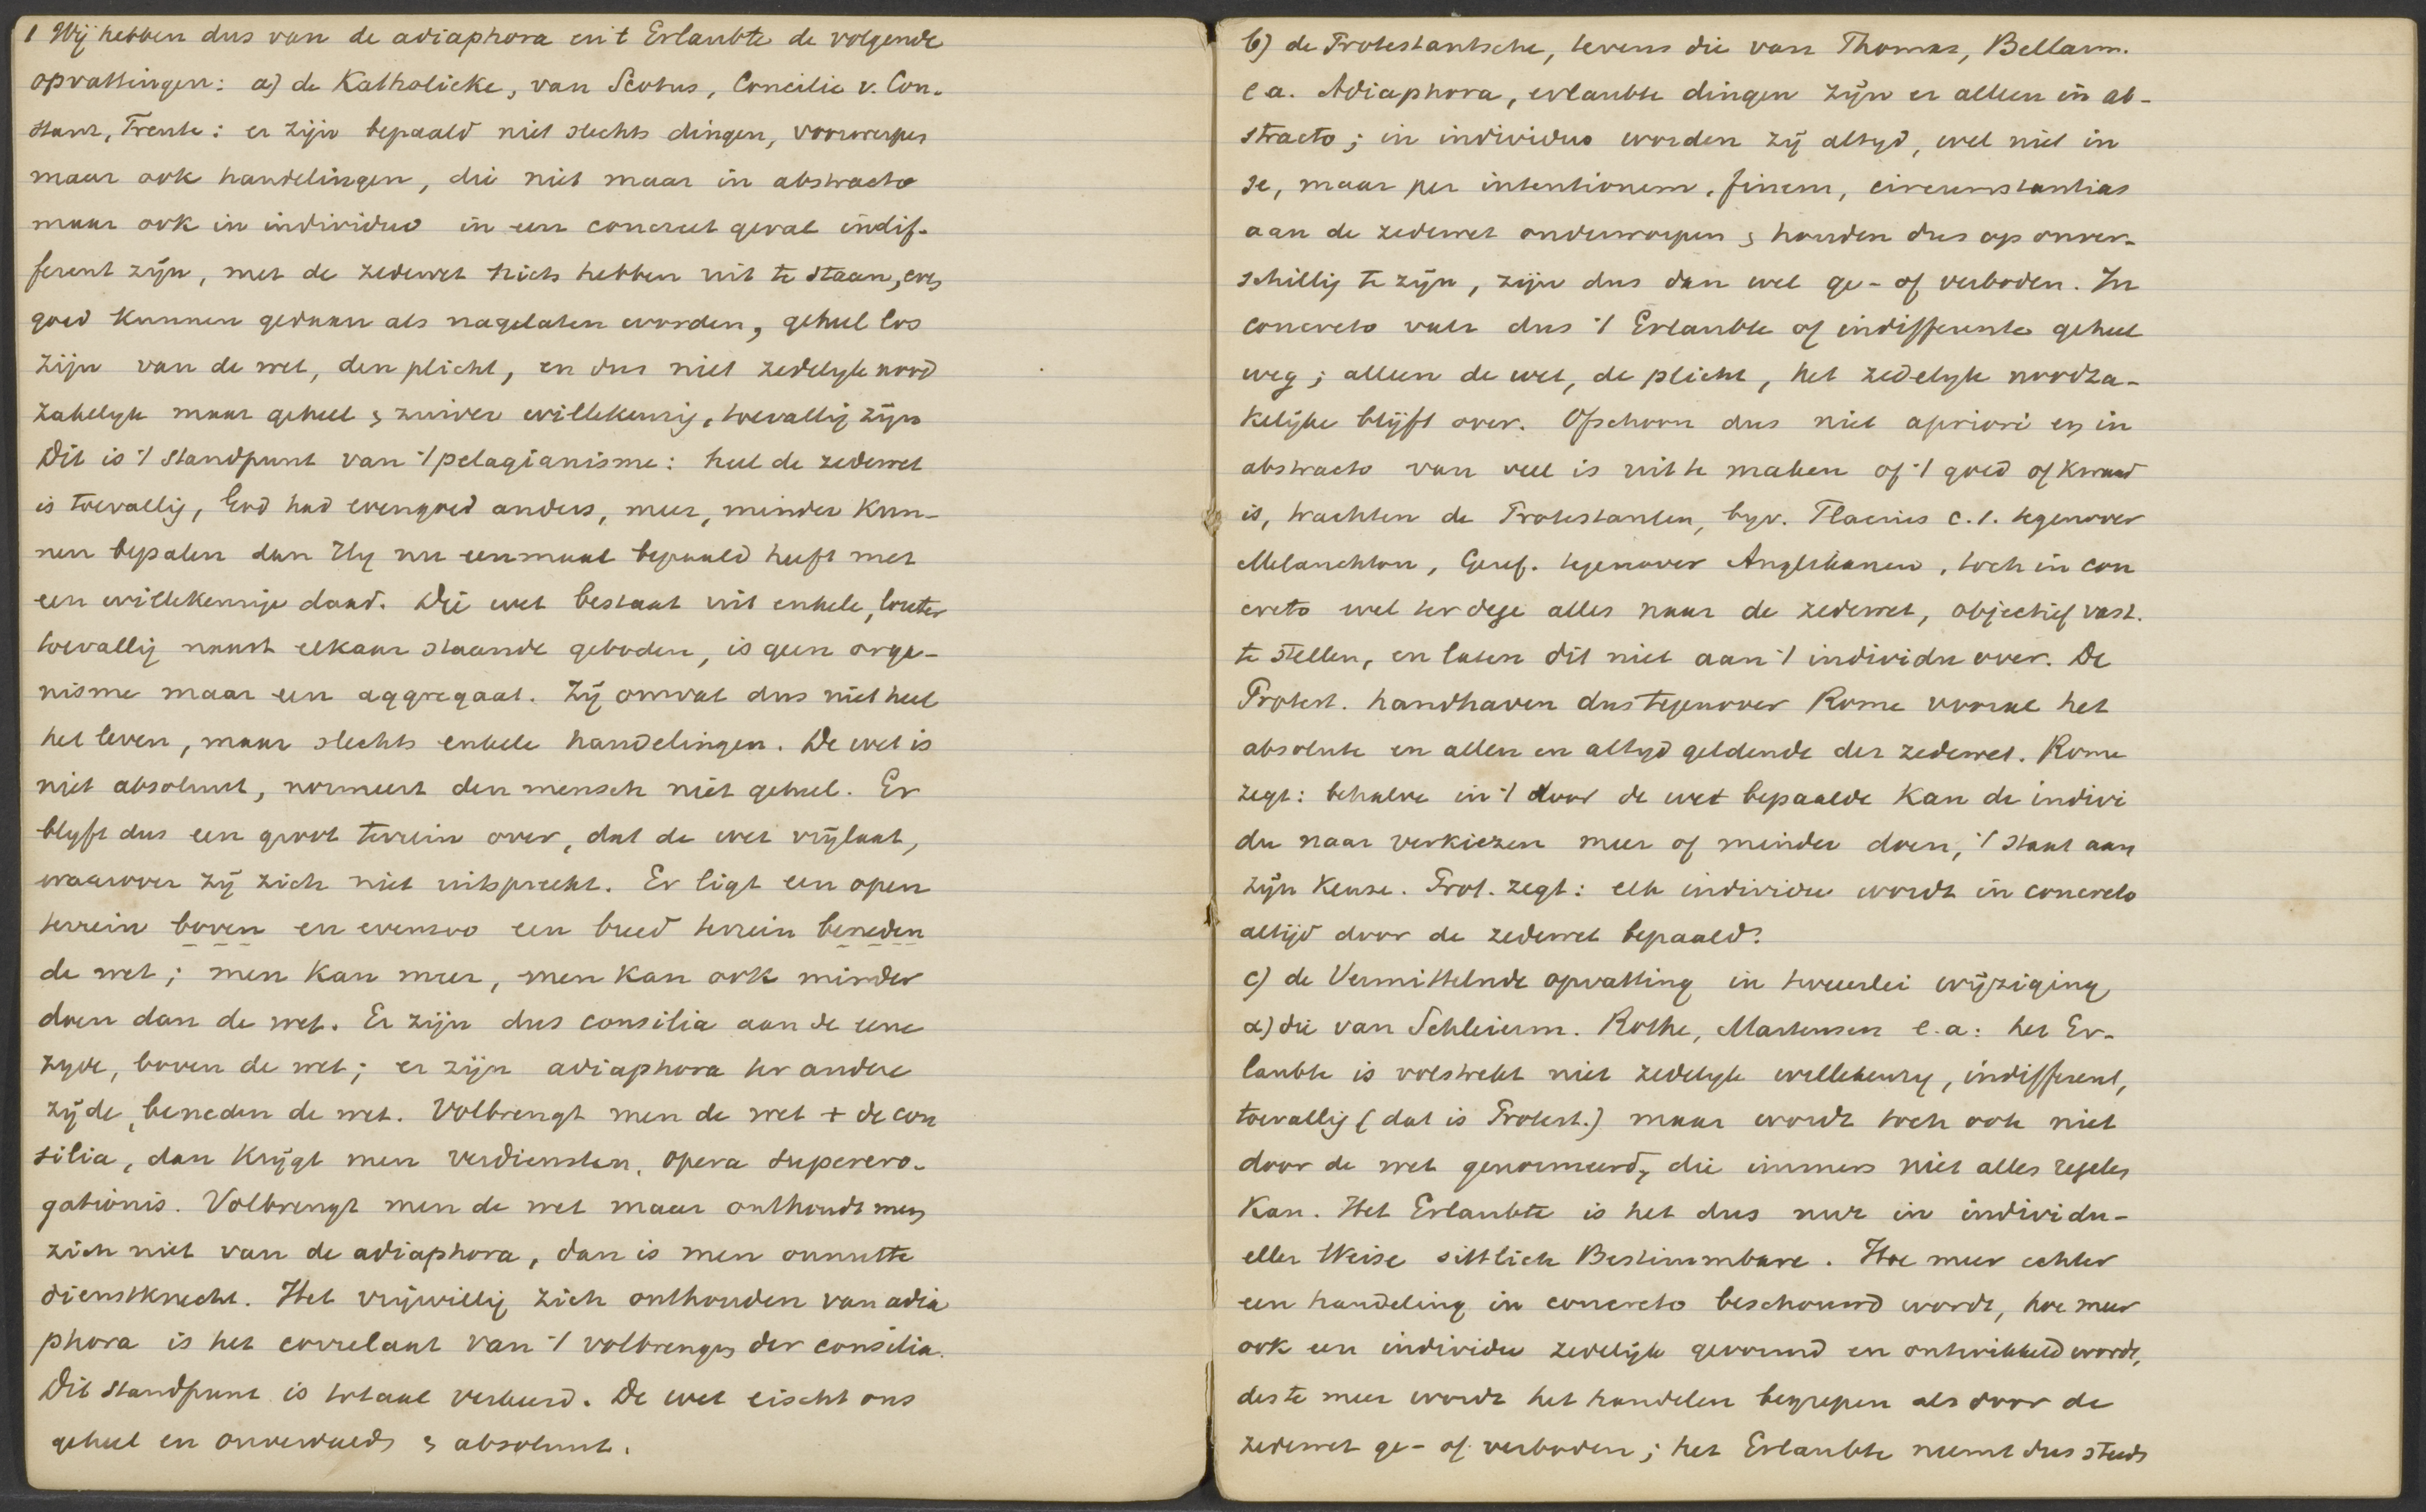 1 Wij hebben dus van de adiaphora en 't Erlaubte de volgende
opvattingen: a) de Katholieke, van Scotus, Concilie v. Con-
stanz, Trente: er zijn bepaald niet slechts dingen, voorwerpen
maar ook handelingen, die niet maar in abstracto
maar ook in individuo in een concreet geval indif-
ferent zijn, met de zedewet niets hebben uit te staan, even
goed kunnen gedaan als nagelaten worden, geheel los
zijn van de wet, den plicht, en dus niet zedelyk nood
zakelyk maar geheel & zuiver willekeurig, toevallig zijn
Dit is 't standpunt van 't pelagianisme: heel de zedewet
is toevallig, God had evengoed anders, meer, minder kun-
nen bepalen dan Hy nu eenmaal bepaald heeft met
een willekeurige daad. Die wet bestaat uit enkele, louter
toevallig naast elkaar staande geboden, is geen orga-
nisme maar een aggregaat. Zij omvat dus niet heel
het leven, maar slechts enkele handelingen. De wet is
niet absoluut, normeert den mensch niet geheel. Er
blyft dus een groot terrein over, dat de wet vrijlaat,
waarover zij zich niet uitspreekt. Er ligt een open
terrein boven en evenzoo een breed terrein beneden
de wet; men kan meer, men kan ook minder
doen dan de wet. Er zijn dus consilia aan de eene
zyde, boven de wet; er zijn adiaphora ter andere
zijde, beneden de wet. Volbrengt men de wet + de con
silia, dan krijgt men verdiensten, opera superero-
gationis. Volbrengt men de wet maar onthoudt men
zich niet van de adiaphora, dan is men onnutte
dienstknecht. Het vrijwillig zich onthouden van adia
phora is het correlaat van 't volbrengen der consilia.
Dit standpunt is totaal verkeerd. De wet eischt ons
geheel en onverdeeld & absoluut.
b) de Protestantsche, tevens die van Thomas, Bellarm.
e a. Adiaphora, erlaubte dingen zijn er alleen in ab-
stracto; in individuo worden zij altyd, wel niet in
se, maar per intentionem, finem, circumstantias
aan de zedewet onderworpen & houden dus op onver-
schillig te zijn, zijn dus dan wel ge- of verboden. In
concreto valt dus 't Erlaubte of indifferente geheel
weg; alleen de wet, de plicht, het zedelyk noodza-
kelijke blijft over. Ofschoon dus niet apriori en in
abstracto van veel is uit te maken of 't goed of kwaad
is, trachten de Protestanten, byv. Flacius c.s. tegenover
Melanchton, Geref. tegenover Anglikanen, toch in con
creto wel ter dege alles naar de zedewet, objectief vast.
te stellen, en laten dit niet aan 't individu over. De
Protest. handhaven dus tegenover Rome vooral het
absolute en allen en altyd geldende der zedewet. Rome
zegt: behalve in 't door de wet bepaalde kan de indivi
du naar verkiezen meer of minder doen, 't staat aan
zijn keuze. Prot. zegt: elk individu wordt in concreto
altijd door de zedewet bepaald.
c) de Vermittelnde opvatting in tweeërlei wijziging
α) die van Schleierm. Rothe, Martensen e.a: het Er-
laubte is volstrekt niet zedelyk willekeurig, indifferent,
toevallig (dat is Protest.) maar wordt toch ook niet
door de wet genormeerd, die immers niet alles regelen
kan. Het Erlaubte is het dus nur in individu-
eller Weise sittlich Bestimmbare. Hoe meer echter
een handeling in concreto beschouwd wordt, hoe meer
ook een individu zedelijk gevormd en ontwikkeld wordt,
des te meer wordt het handelen begrepen als door de
zedewet ge- of verboden; het Erlaubte neemt dus steeds